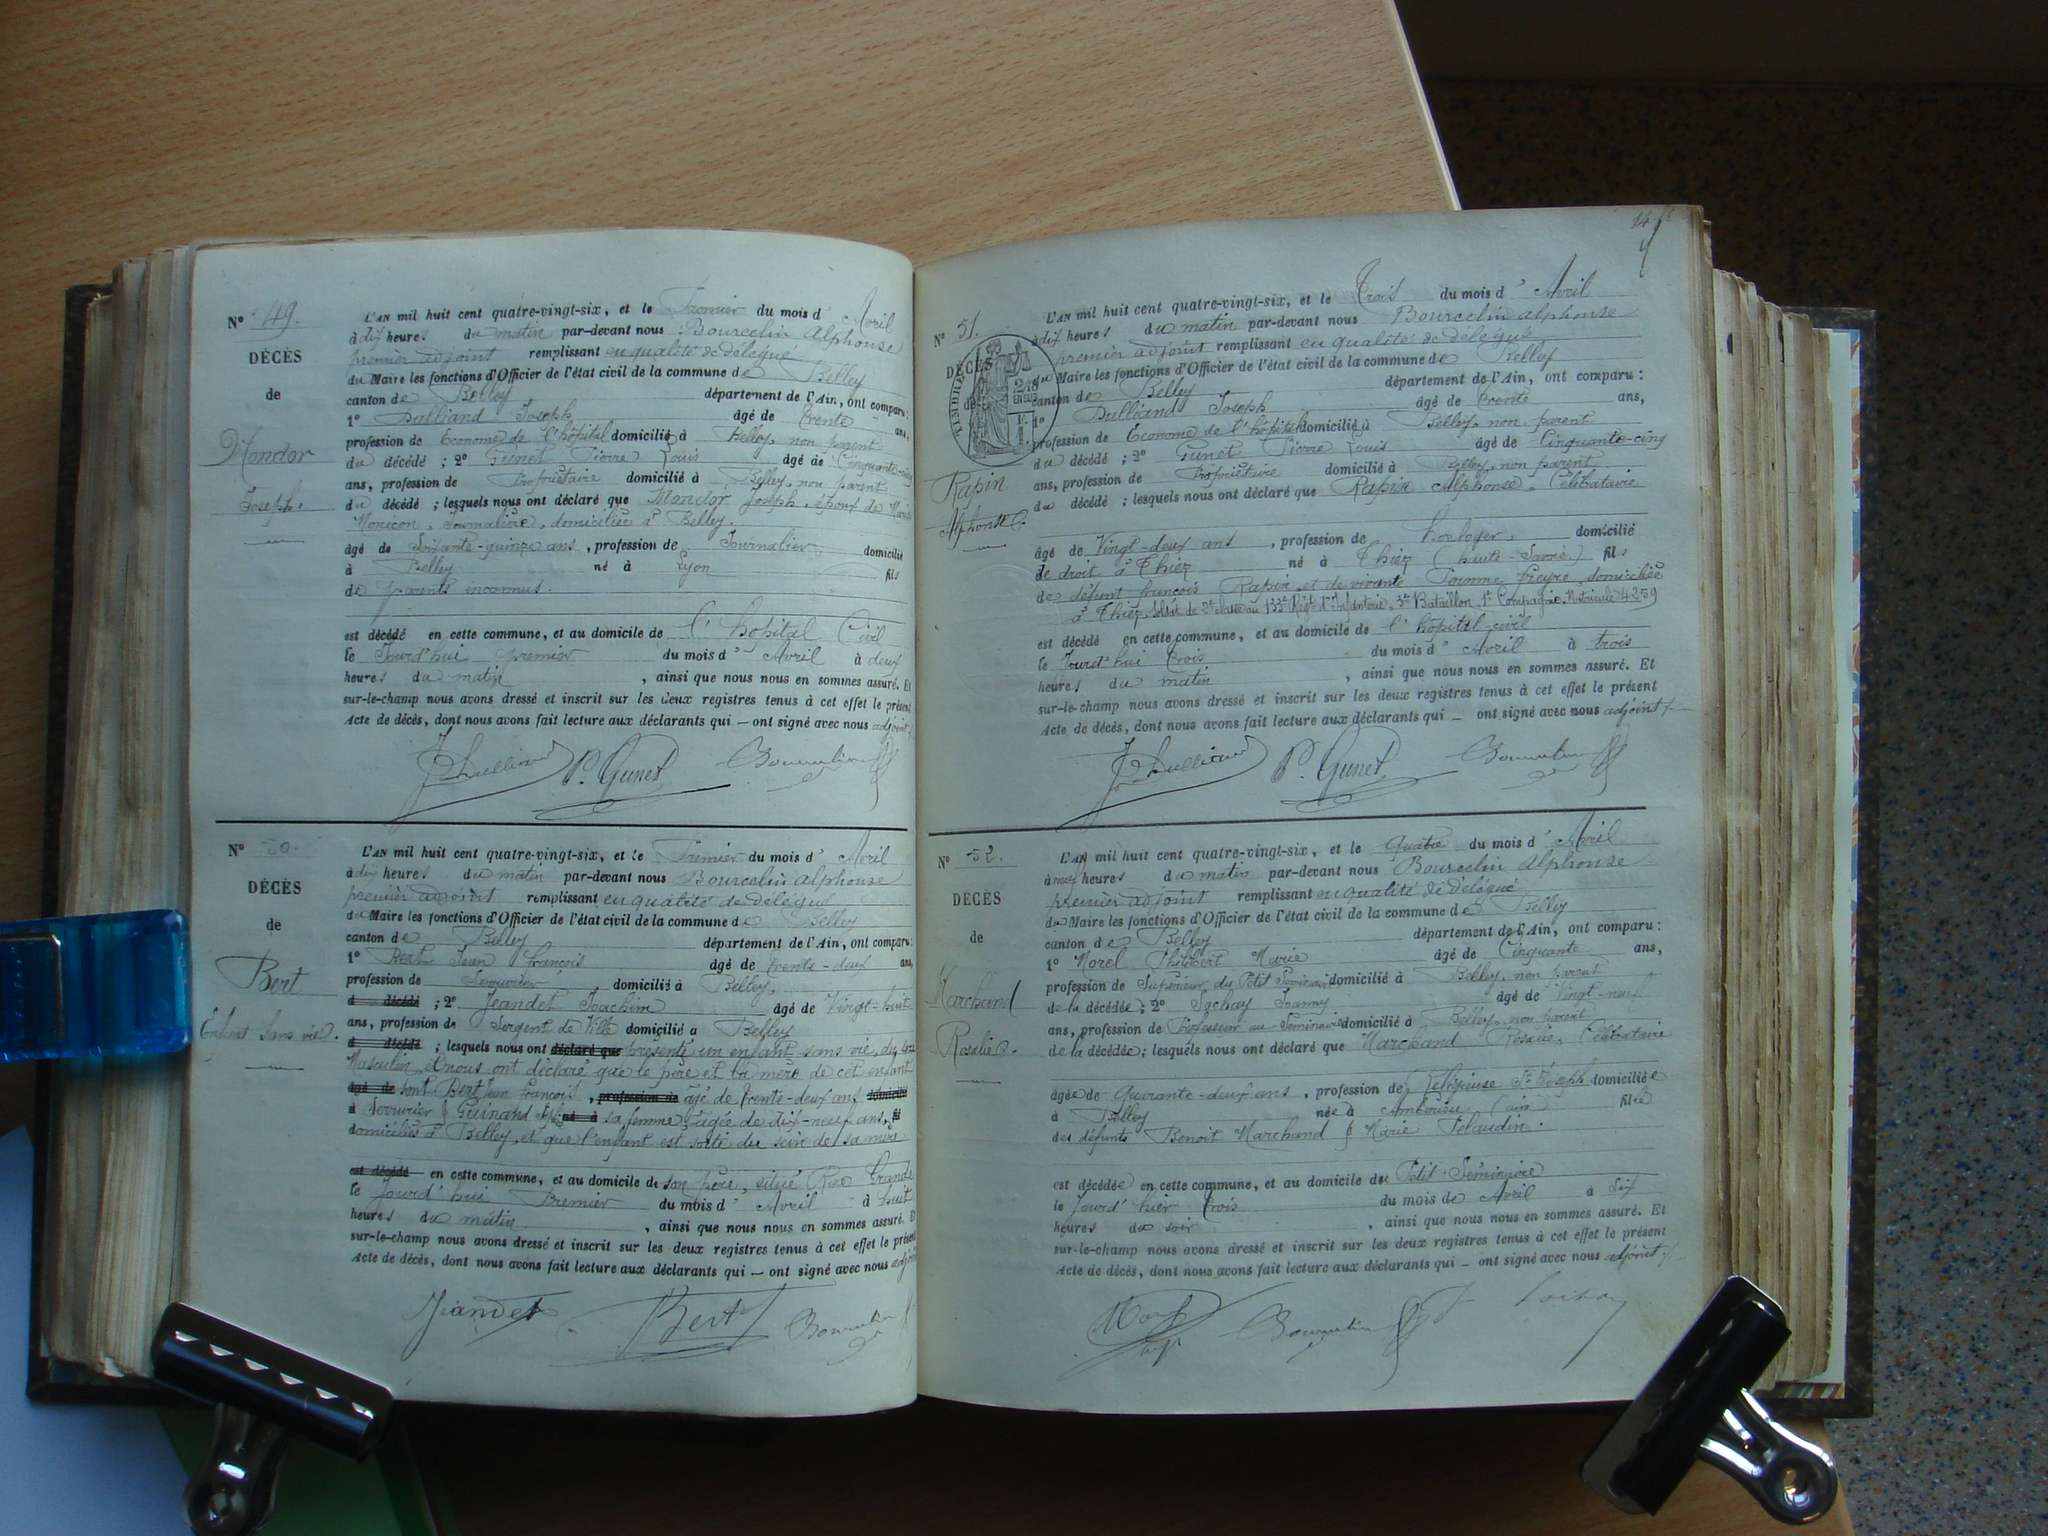 N° 49.
DÉCÈS
de
Mondor
Joseph.
L'AN mil huit cent quatre-vingt-six, et le Premier du mois d' Avril
à dix heures du matin par-devant nous Bourcelin Alphonse
premier adjoint remplissant en qualité de délégué
du Maire les fonctions d'Officier de l'état civil de la commune de Belley
canton de Belley département de l'Ain, ont comparu :
1° Dulliand Joseph âgé de trente ans,
profession de Econome de l'hôpital domicilié à Belley, non parent
du décédé ; 2° Gunet Pierre Louis âgé de Cinquante-cinq
ans, profession de Propriétaire domicilié à Belley, non parent
du décédé ; lesquels nous ont déclaré que Mondor Joseph, époux de Marie
Journalière, domiciliée à Belley.
âgé de Soixante-quinze ans, profession de Journalier domicilié
à Belley né à Lyon fils
de parents inconnus.
est décédé en cette commune, et au domicile de l'hôpital Civil
le Jourd'hui premier du mois d' Avril à deux
heures du matin, ainsi que nous nous en sommes assuré. Et
sur-le-champ nous avons dressé et inscrit sur les deux registres tenus à cet effet le présent
Acte de décès, dont nous avons fait lecture aux déclarants qui — ont signé avec nous adjoint
J Dulliand P. Gunet Bourcelin
N° 50.
DÉCÈS
de
Bert
Enfant sans vie.
L'AN mil huit cent quatre-vingt-six, et le Premier du mois d' Avril
à dix heures du matin par-devant nous Bourcelin Alphonse
premier adjoint remplissant en qualité de délégué
du Maire les fonctions d'Officier de l'état civil de la commune de Belley
canton de Belley département de l'Ain, ont comparu :
1° Bert Jean François âgé de trente-deux ans,
profession de Serrurier domicilié à Belley.
d décédé ; 2° Jeandet Joachim âgé de Vingt-huit
ans, profession de Sergent de Ville domicilié à Belley
d décédé ; lesquels nous ont déclaré que présenté un enfant sans vie, du sexe
Masculin, et nous ont déclaré que le père et la mère de cet enfant
âgé de sont Bert Jean François, profession de âgé de trente-deux ans domicilié
à Serrurier & Guinand né à sa femme âgée de dix-neuf ans, fil
domiciliés à Belley, et que l'enfant est sorti du sein de sa mère
est décédé en cette commune, et au domicile de son père, situé Rue Grande
le Jourd'hui Premier du mois d' Avril à huit
heures du matin, ainsi que nous nous en sommes assuré. Et
sur-le-champ nous avons dressé et inscrit sur les deux registres tenus à cet effet le présent
Acte de décès, dont nous avons fait lecture aux déclarants qui — ont signé avec nous adjoint
Jeandet Bert Bourcelin
N° 51.
DÉCÈS
de
TIMBRE
Rapin
Alphonse.
L'AN mil huit cent quatre-vingt-six, et le Trois du mois d' Avril
à dix heures du matin par-devant nous Bourcelin Alphonse
premier adjoint remplissant en qualité de délégué
du Maire les fonctions d'Officier de l'état civil de la commune de Belley
canton de Belley département de l'Ain, ont comparu :
1° Dulliand Joseph âgé de trente ans,
profession de Econome de l'hôpital domicilié à Belley, non parent
du décédé ; 2° Gunet Pierre Louis âgé de Cinquante-cinq
ans, profession de Propriétaire domicilié à Belley, non parent
du décédé ; lesquels nous ont déclaré que Rapin Alphonse, Célibataire
âgé de Vingt-deux ans, profession de horloger, domicilié
de droit à Thiez né à Thiez (haute-Savoie) fils
de défunt françois Rapin et de vivante domiciliée
à Thiez, Soldat de 2e classe au 133e Régt d'Infanterie, 3e Bataillon, 1e Compagnie, Matricule 4259
est décédé en cette commune, et au domicile de l'hôpital-civil
le Jourd'hui trois du mois d' Avril à trois
heures du matin, ainsi que nous nous en sommes assuré. Et
sur-le-champ nous avons dressé et inscrit sur les deux registres tenus à cet effet le présent
Acte de décès, dont nous avons fait lecture aux déclarants qui — ont signé avec nous adjoint
J Dulliand P. Gunet Bourcelin
N° 52.
DÉCÈS
de
Marchand
Rosalie.
L'AN mil huit cent quatre-vingt-six, et le Quatre du mois d' Avril
à neuf heures du matin par-devant nous Bourcelin Alphonse
premier adjoint remplissant en qualité de délégué
du Maire les fonctions d'Officier de l'état civil de la commune de Belley
canton de Belley département de l'Ain, ont comparu :
1° Morel Philibert Marie âgé de Cinquante ans,
profession de Supérieur du Petit Séminaire domicilié à Belley, non parent
de la décédée ; 2° Joanny âgé de Vingt-neuf
ans, profession de Professeur au Séminaire domicilié à Belley, non parent
de la décédée ; lesquels nous ont déclaré que Marchand Rosalie, Célibataire
âgée de Quarante-deux ans, profession de Religieuse St Joseph domiciliée
à Belley née à Ambérieu (ain) fille
des défunts Benoît Marchand & Marie
est décédée en cette commune, et au domicile du Petit Séminaire
le Jourd'hier trois du mois de Avril à six
heures du soir, ainsi que nous nous en sommes assuré. Et
sur-le-champ nous avons dressé et inscrit sur les deux registres tenus à cet effet le présent
Acte de décès, dont nous avons fait lecture aux déclarants qui — ont signé avec nous adjoint
Bourcelin